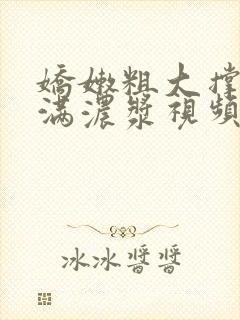 嬌嫩粗大撐
滿濃漿視頻
冰冰醬醬